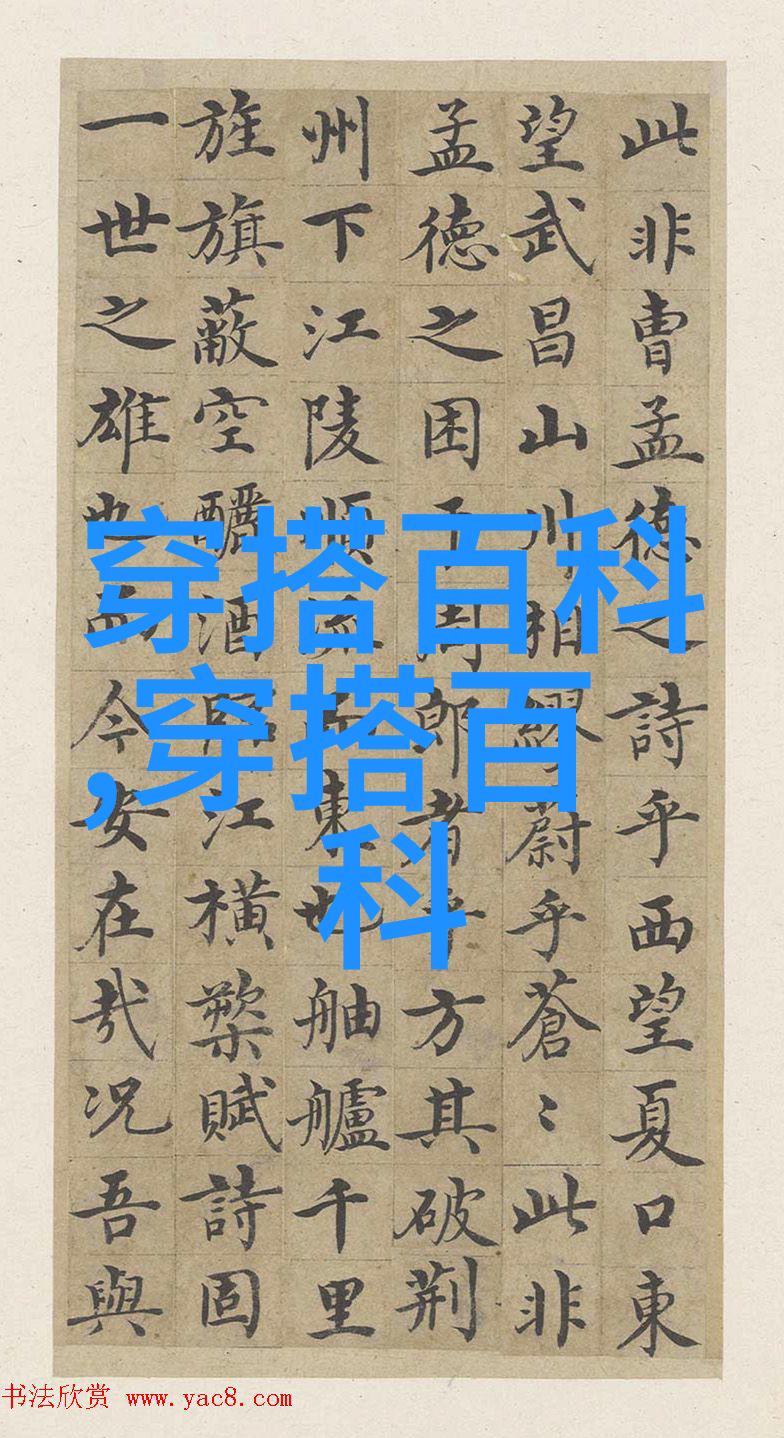 此非曹孟德之詩乎西望夏口東
望武昌山川相繆蔚乎蒼〻此非
孟德之困于周郎者乎方其破荆
州下江陵順流而東也舳艫千里
旌旗蔽空釃酒臨江横槊賦詩固
一世之雄也而今安在哉况吾與
穿搭百科
,穿搭百
科
书法欣赏 www.yac8.com